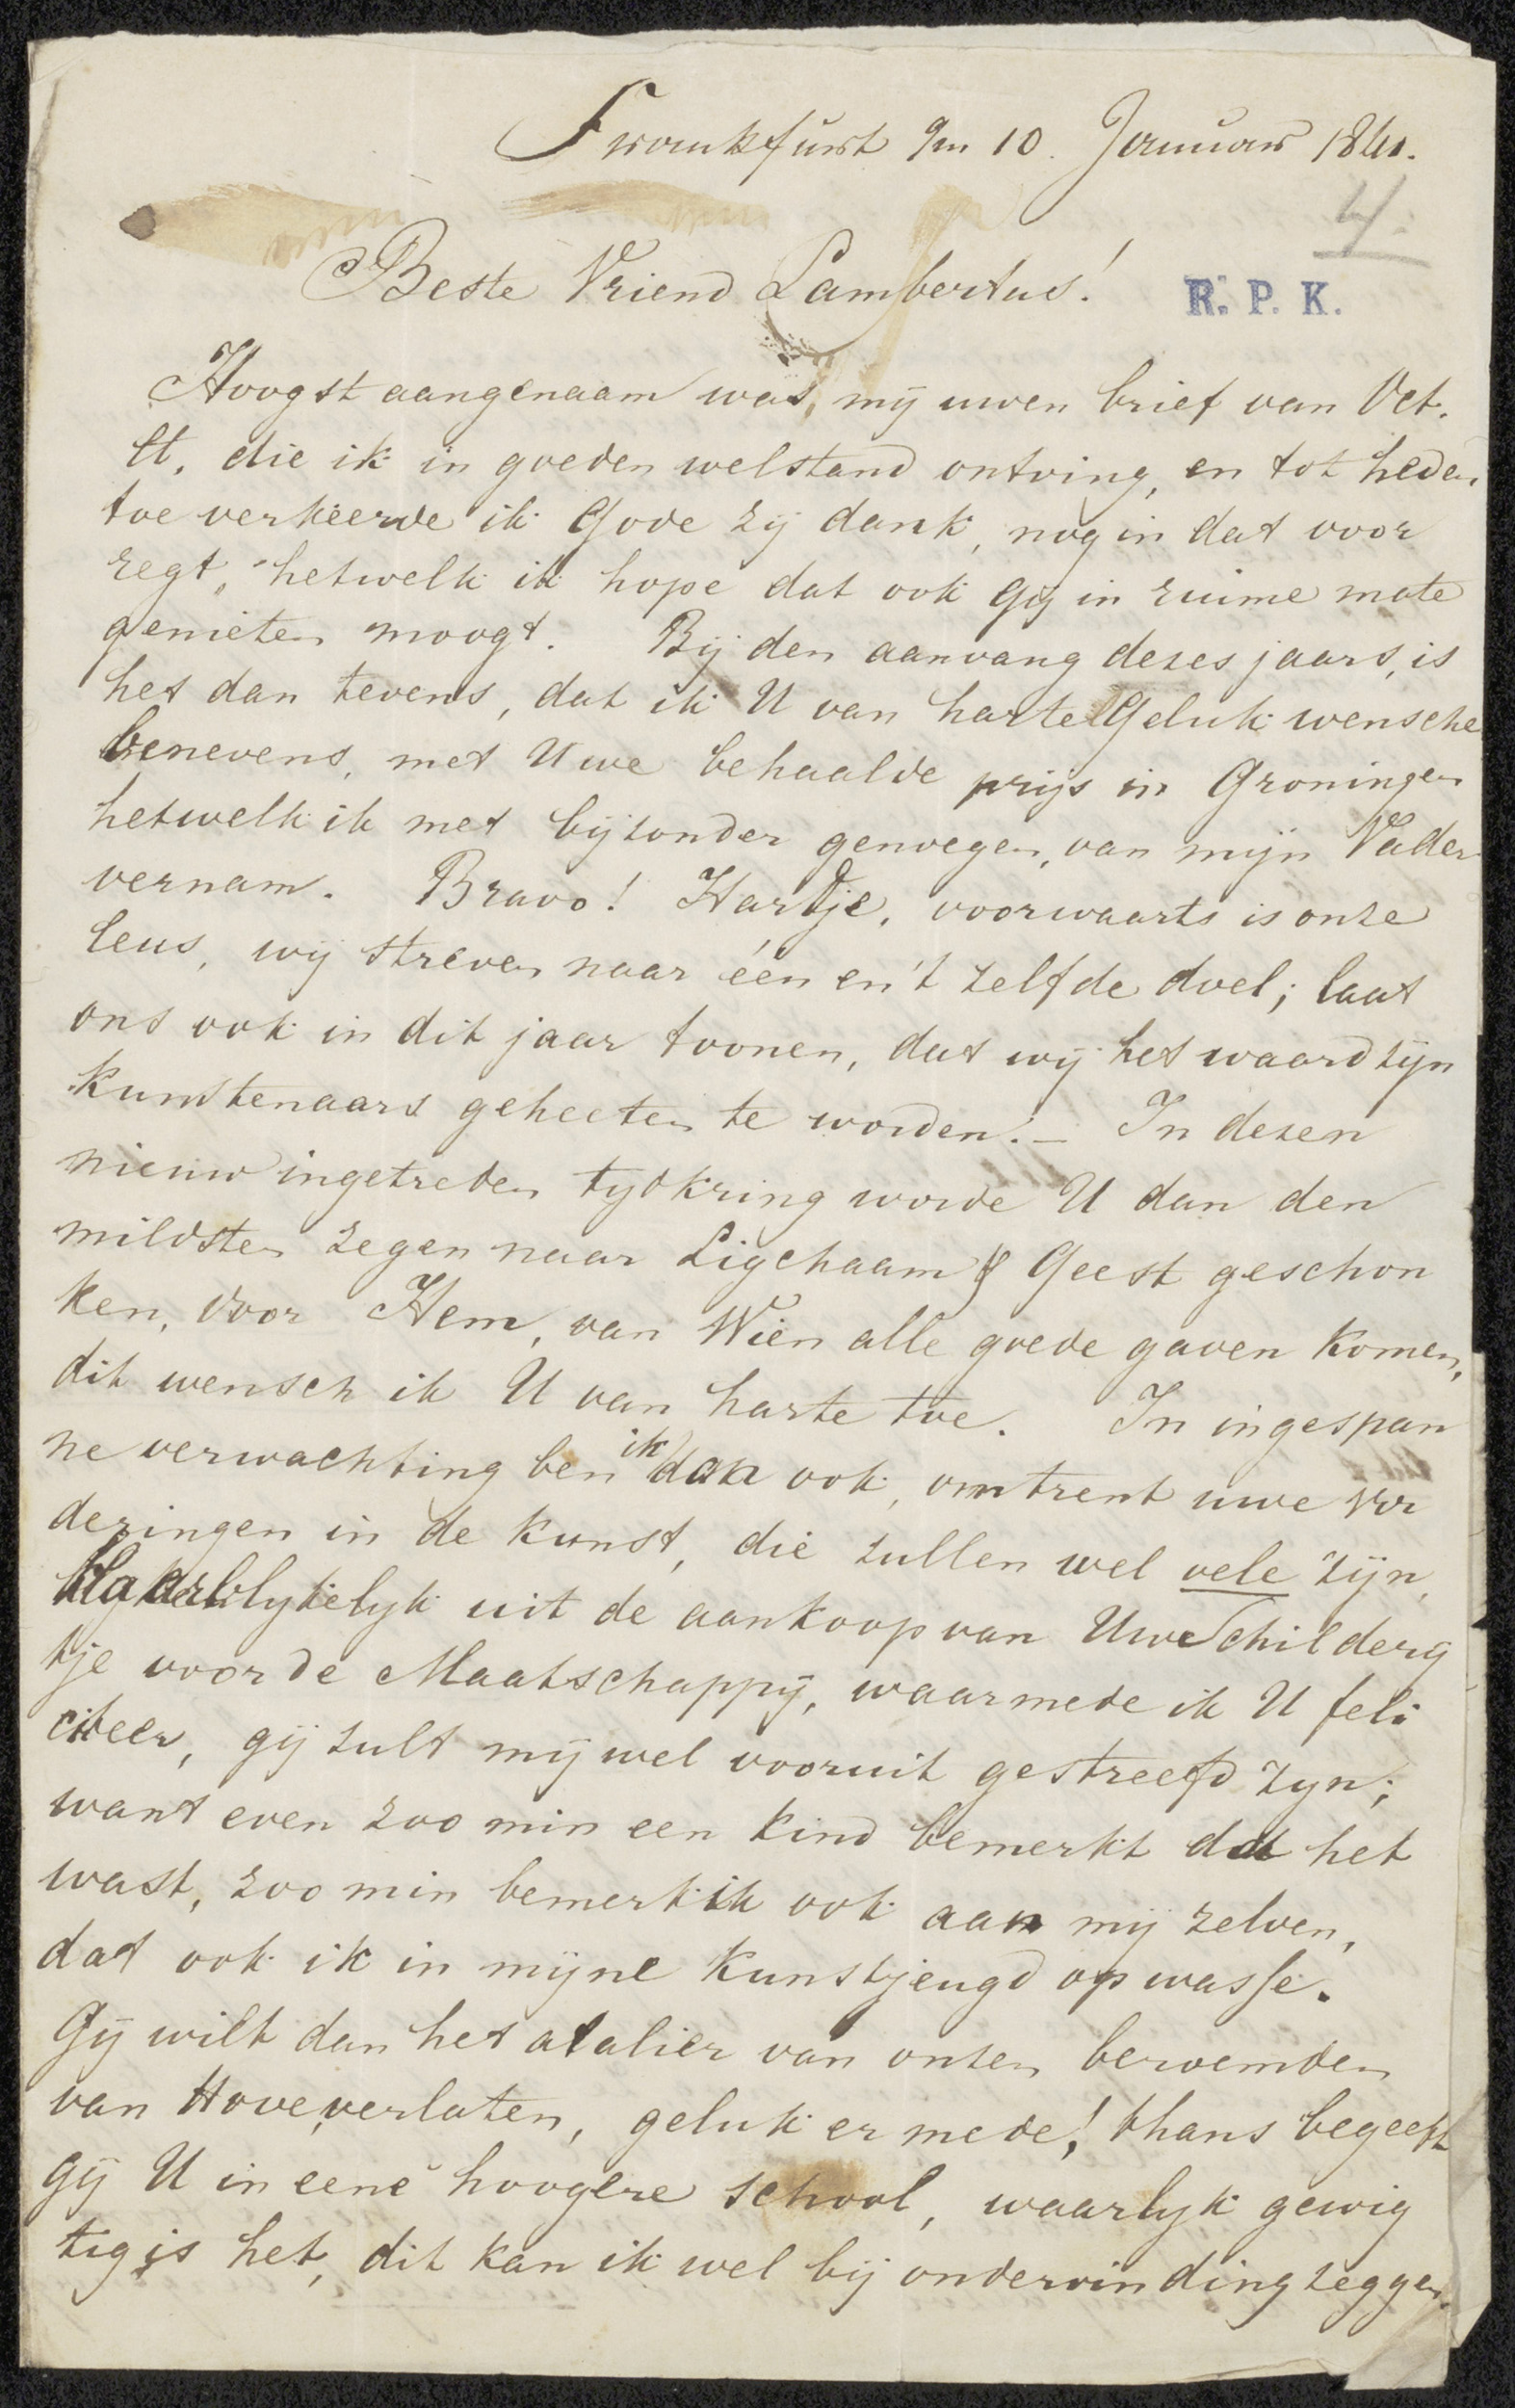 Frankfurt 9/m 10. Januar 1841.
4.
Beste Vriend Lambertus!
R. P. K.
Hoogst aangenaam was, mij uwen brief van Oct.
ll, die ik in goeden welstand ontving, en tot heden
toe verkeerde ik Gode zij dank, nog in dat voor
regt, hetwelk ik hope dat ook Gij in ruime mate
genieten moogt. Bij den aanvang dezes jaars, is
het dan tevens, dat ik U van harte Geluk wensche
benevens, met Uwe behaalde prijs in Groningen
hetwelk ik met bijzonder genoegen, van mijn Vader
vernam. Bravo! Hartje, voorwaarts is onze
leus, wij streven naar één en 't zelfde doel; laat
ons ook in dit jaar toonen, dat wij het waard zijn
kunstenaars geheeten te worden. — In dezen
nieuw ingetreden tydkring worde U dan den
mildsten zegen naar Ligchaam & Geest geschon
ken, door Hem, van Wien alle goede gaven komen,
dit wensch ik U van harte toe. In ingespan
ne verwachting ben ik dan ook, omtrent uwe vor
deringen in de kunst, die zullen wel vele zijn,
klaarblykelyk uit de aankoop van Uwe Schildery
tje voor de Maatschappÿ, waarmede ik U feli
citeer, gij zult mij wel vooruit gestreefd zyn;
want even zoo min een kind bemerkt dat het
wast, zoo min bemerk ik ook aan mij zelven,
dat ook ik in mijne kunstjeugd opwasse.
Gij wilt dan het atalier van onzen beroemden
van Hove, verlaten, geluk er mede! thans begeeft
gij U in eene hoogere school, waarlyk gewig
tig is het, dit kan ik wel bij ondervinding zeggen.